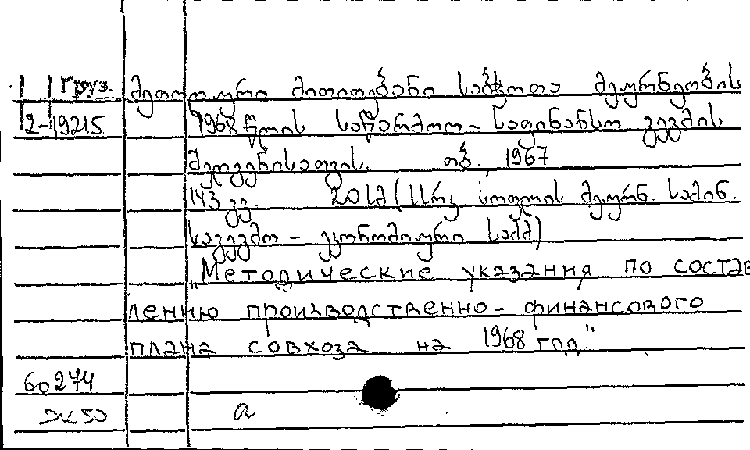 Груз. მეთოდური მითითებანი საბჭოთა მეურნეობის
2-19215 1968 წლის საწარმოო-საფინანსო გეგმის
შედგენისათვის. თბ. 1967
143 გვ. 20სმ (სსრკ სოფლის მეურნ. სამინ.
საგეგმო-ეკონომიკური სამმ)
„Методические указания по состав
лению производственно-финансового
плана совхоза на 1968 год"
60274
а